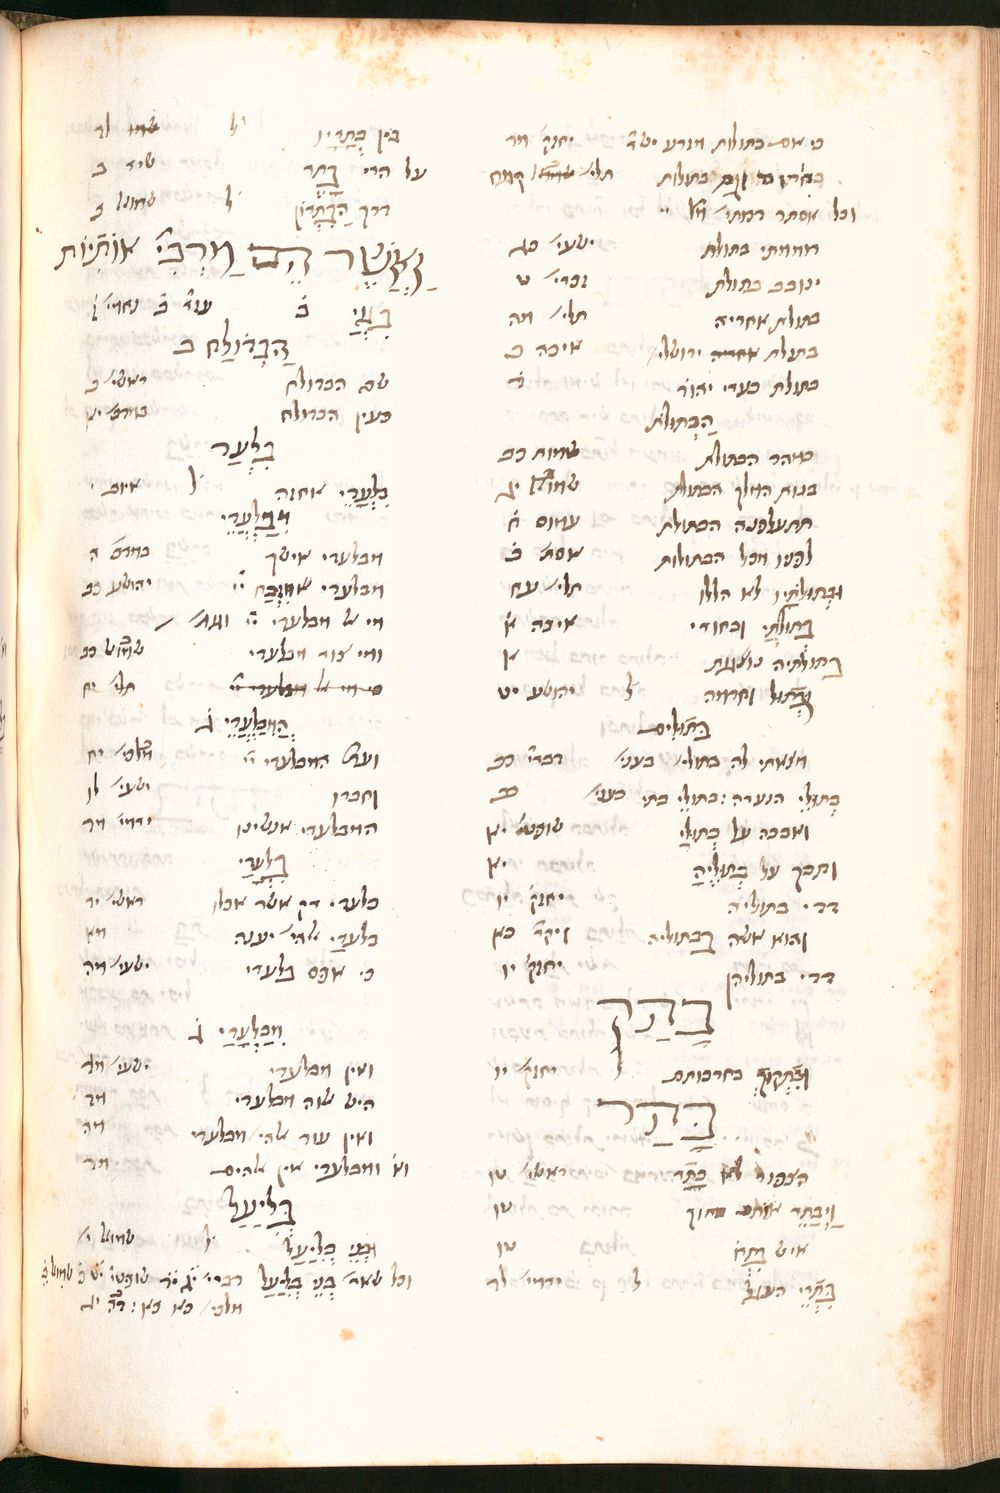 כי אם בתולות מזרע יחזק׳ מד
בחורים וגם בתולות תלי׳ קמח
וכל אסתר
חממתי בתולת ישעי׳ כג
ינובב בתולות זכרי׳ ט
בתולות אחריה תלי׳ מה
בתולת ירושלי׳ איכה ב
בתולת בעדי יהוד׳
הַבְתוּלֹת
כמהר הבתולת שמות כב
בנות המלך הבתולת יג
תתעלפנה הבתולת עמוס ח
לפני מכל הבתולות אסת׳ ב
וּבְתוּלֹתָיו לא הללו תלי׳ עח
בְּתוּלֹתַי ובחורי איכה א
בתולתיה נוגות א
וּבְתוּל וחרמה ל יהושע יט
בְּתוּלִים
מצאתי לה בתולי׳ בעני׳ דברי׳ כב
בְּתוּלֵי הנערה: בתולי בתי בעני׳ כב
ואבכה על בְּתוּלַי שופטי׳ יא
ותבך על בְּתוּלֶיהָ יא
דדי בתוליה יחזק׳ יו
והוא אשה בבתוליה ויקר׳ כא
דדי בתוליהן יחזק׳ יו
בָּתַק
וּבִתְּקוּךְ בחרבותם ל יחזק׳ יו
בָּתַר
הצפור לא בָתָר ראשי׳ טו
וַיְבַתֵּר אותם בתוך טו
איש בִּתְרוֹ טו
בִּתְרֵי העגל ל ירמי׳ לד
בין בְּתָרָיו ל
על הרי בָתֶר שיר ב
דרך הַבִּתְרוֹן ל שמואל ב
וַאֲשֶׁר הֵם מֵרְבִּי׳ אוֹתִיוֹת
ב עזר׳ ב נחמי׳
הַבְּדוֹלַח ב
שם הבדולח ראשי׳ ב
כעין הבדולח במדב׳ יא
בִּלְעַד
בִּלְעֲדֵי אחזה ל איוב
מִבַּלְעֲדֵי
מבלעדי אישך במדב׳ ה
מבלעדי מזבח יי׳ יהושע כב
מי אל מבלעדי יי׳
ומי צור מבלעדי כב
מבלעדי יי׳ תלי׳ יח
הֲמִבַּלְעֲדֵי ג
ועתה המבלעדי יי׳ יח
וחברו ישעי׳ לו
המבלעדי אנשינו ירמי׳ מד
בִּלְעָדַי
בלעדי רק אשר אכלו ראשי׳ יד
בלעדי אלהי׳ יענה מא
כי אפס בלעדי ישעי׳ מה
מִבַּלְעָדַי ג
ואין מבלעדי ישעי׳ מג
היש אלוה מבלעדי מד
ואין עוד אלהי׳ מבלעדי מה
ומבלעדי אין אלהים מד
בְּלִיַּעַל
וּבְנֵי בְלִיַּעַל ל שמואל י
וכל שאר׳ בְּנֵי בְלִיַּעַל דברי׳ יג שופטי׳
מלכי׳ כא